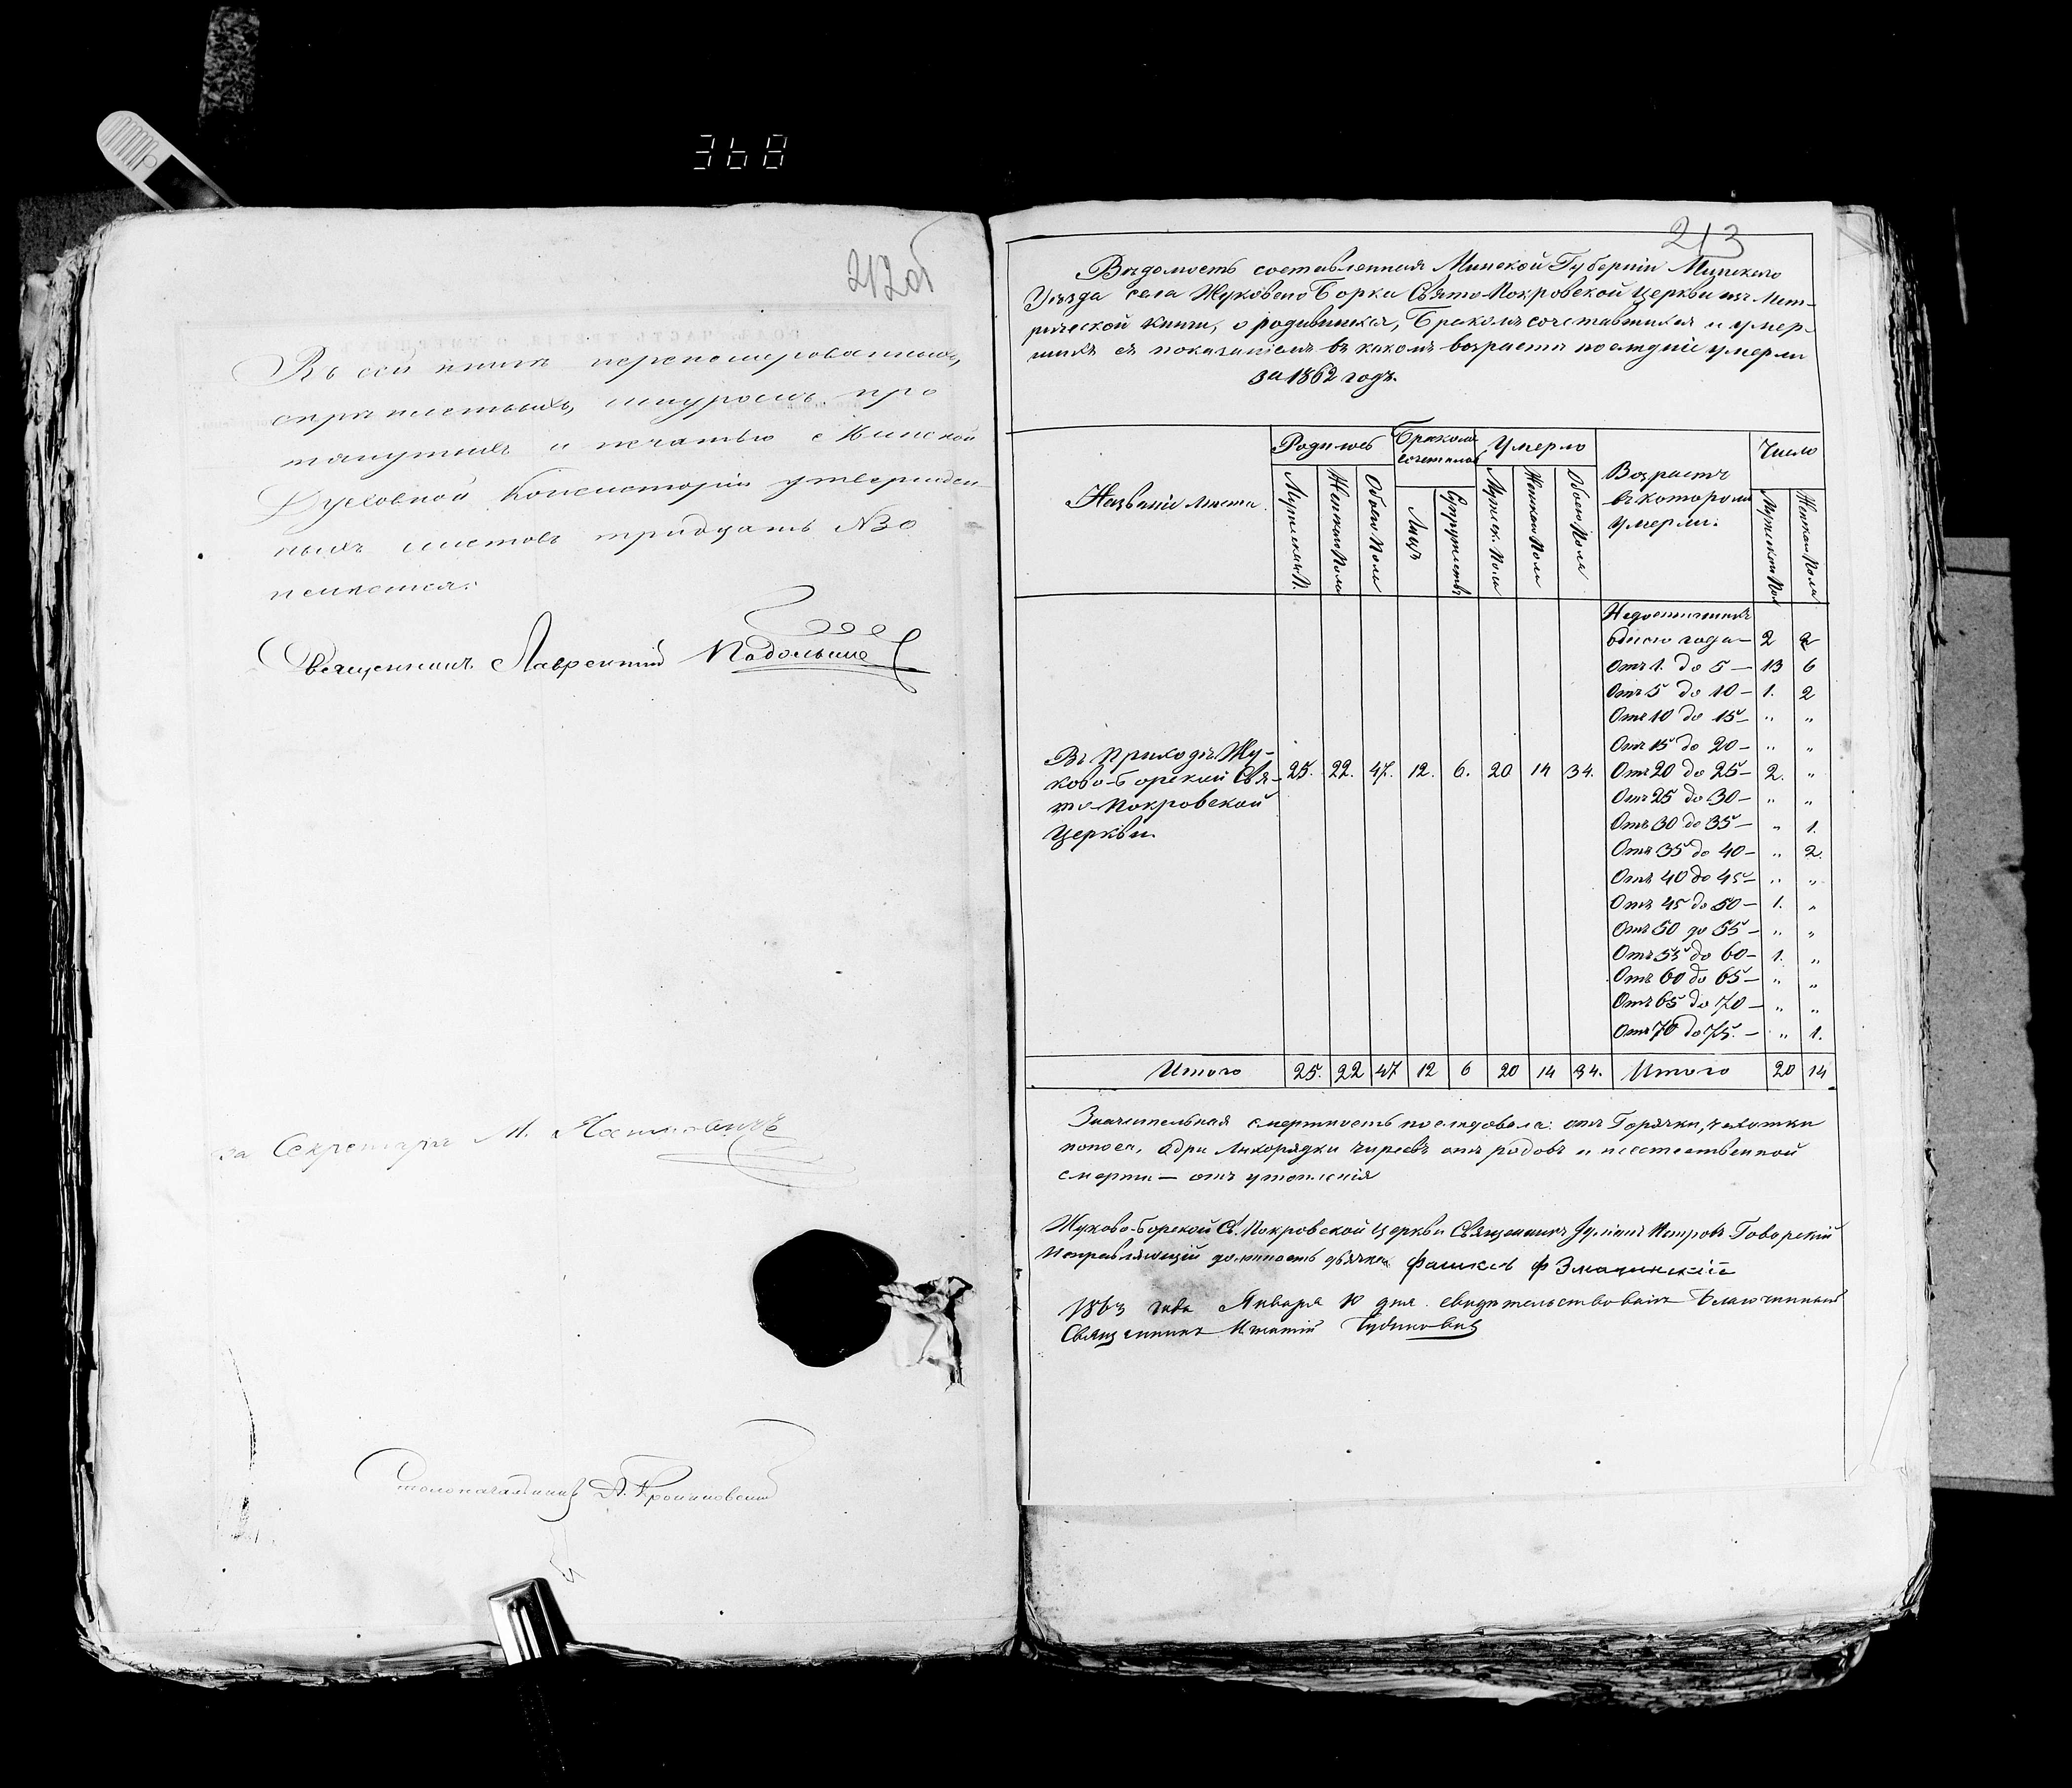 368
212об
Въ сей книгѣ перенумерованныхъ,
скрѣпленныхъ, шнуромъ про
тянутыхъ и печатью Минской
Духовной Консисторіи утвержден-
ныхъ листовъ тридцать №30
Священникъ Лаврентій
За Секретаря М.
Столоначальникъ А.
213
Вѣдомость составленная Минской Губерніи Минскаго
Уѣзда села Жуковаго Борка Свято-Покровской Церкви изъ Мет-
рической книги, о родившихся, Бракомъ сочетавшихся и умер-
шихъ съ показаніемъ въ какомъ возрастѣ послѣдніе умерли
за 1862 годъ.
Названіе мѣста.
Родилось
Бракомъ сочеталось
Умерло
Возрастъ въ которомъ умерли.
Число
Мужескаго П.
Женскаго Пола
Обоего Пола
Лицъ
Супружествъ
Мужеск. Пола
Женскаго Пола
Обоего Пола
Мужескаго Пол
Женскаго Пола
Недостигшихъ
одного года — 2 2
Отъ 1. до 5 — 13 6
Отъ 5 до 10 — 1. 2
Отъ 10 до 15 — „ „
Отъ 15 до 20 — „ „
Въ Приходѣ Жу-
ково-Борской Свя-
то-Покровской
Церкви.
25. 22. 47. 12. 6. 20 14 34.
Отъ 20 до 25 — 2. „
Отъ 25 до 30 — „ „
Отъ 30 до 35 — „ 1.
Отъ 35 до 40 — „ 2.
Отъ 40 до 45 — „ „
Отъ 45 до 50 — 1. „
Отъ 50 до 55 — „ „
Отъ 55 до 60 — 1. „
Отъ 60 до 65 — „ „
Отъ 65 до 70 — „ „
Отъ 70 до 75. — „ 1.
Итого 25. 22 47 12 6 20 14 34. Итого 20 14
Значительная смертность послѣдовала: отъ Горячки, чахотки
поноса, Лихорядки отъ родовъ и неестественной
смерти — отъ утопленія
Жуково-Борской Св. Покровской Церкви Священникъ Петровъ Говорскій
Исправляющій должность дьячка
1863 года Января 10 дня свидѣтельствовалъ Благочинный
Священникъ Игнатій